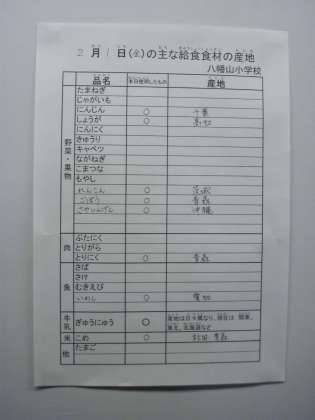 2月1日(金)の主な給食食材の産地
八幡山小学校
品名 本日使用したもの 産地
野菜・果物
たまねぎ
じゃがいも
にんじん ○ 千葉
しょうが ○ 高知
にんにく
きゅうり
キャベツ
ながねぎ
こまつな
もやし
れんこん ○ 茨城
ごぼう ○ 青森
さやいんげん ○ 沖縄
肉
ぶたにく
とりがら
とりにく ○ 青森
魚
さば
さけ
むきえび
いわし ○ 愛知
牛乳 ぎゅうにゅう ○ 産地は日々異なり、現在は 関東、東北、北海道など
米 こめ ○ 秋田 青森
他 たまご